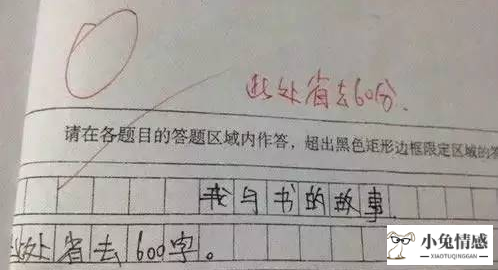 此处省去60分.
请在各题目的答题区域内作答，超出黑色矩形边框限定区域的答
我与书的故事
此处省去600字。
小兔情感
XIAOTUQINGGAN